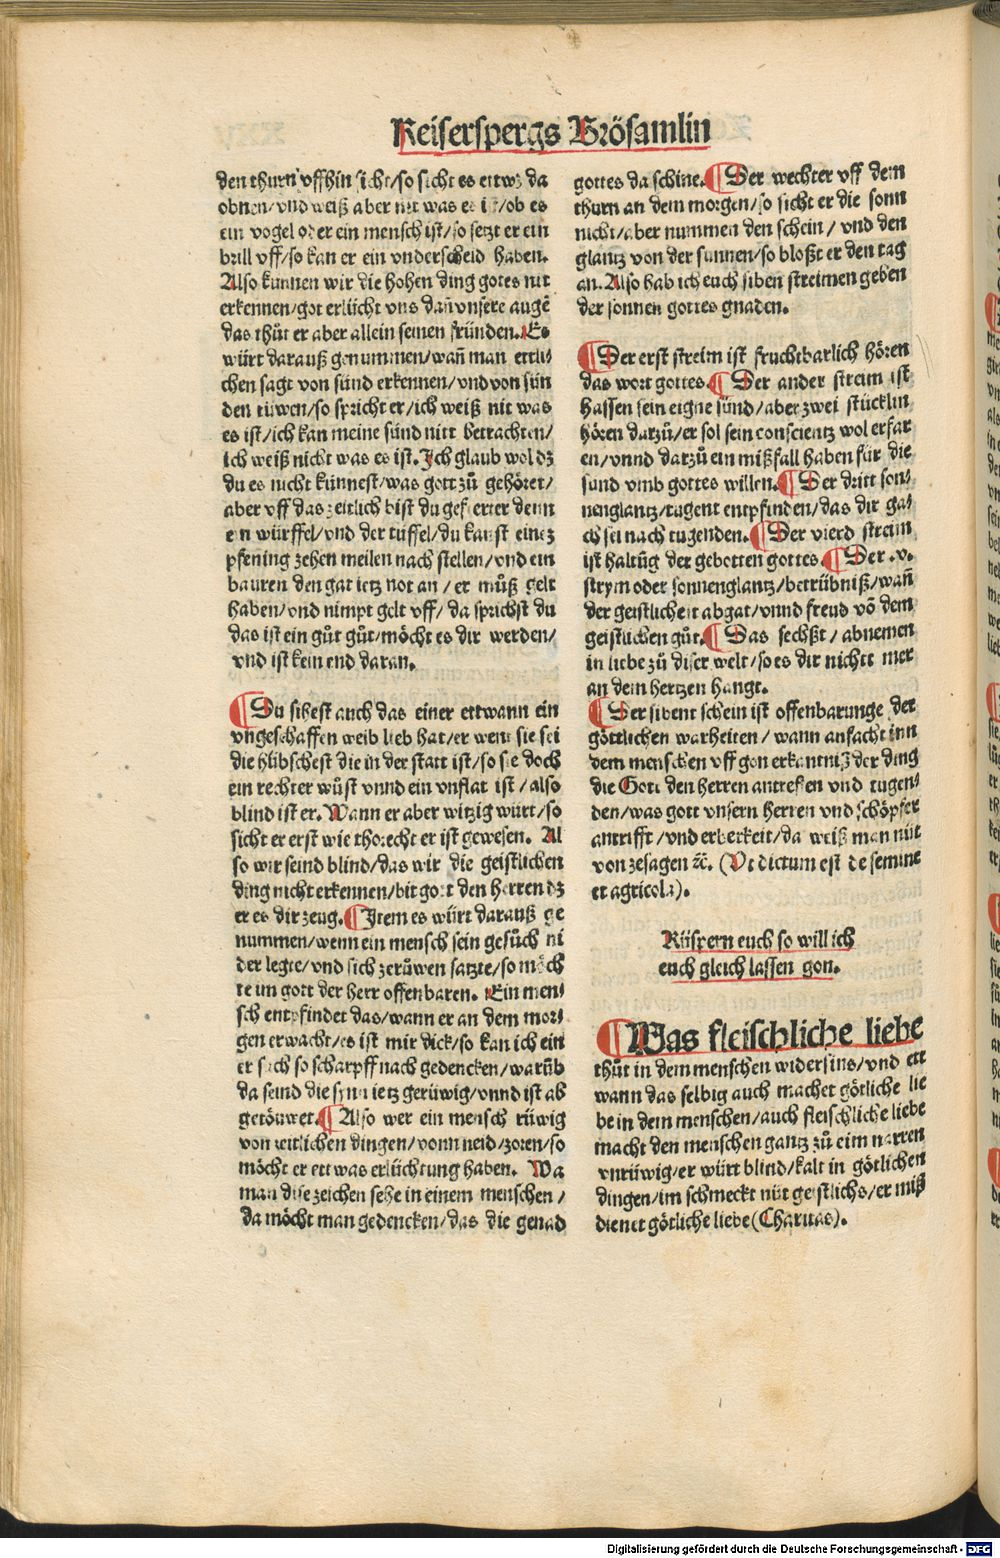 Keiserspergs Brösamlin
den thurn vffhin sicht/so sicht es ettwz da
obnen/vnd weiß aber nit was es ist/ob es
ein vogel oder ein mensch ist/so setzt er ein
brill vff/so kan er ein vnderscheid haben.
Also kunnen wir die hohen ding gotes nit
erkennen/got erlücht vns dañ vnsere augē
das thůt er aber allein seinen fründen. Es
würt darauß genummen/wañ man ettli/
chen sagt von sünd erkennen/vnd von sün
den rüwen/so spricht er/ich weiß nit was
es ist/ich kan meine sünd nitt betrachten/
ich weiß nicht was es ist. Ich glaub wol dz
du es nicht künnest/was gott zů gehöret/
aber vff das zeitlich bist du gefierter denn
ein würffel/vnd der tüffel/du kanst einez
pfening zehen meilen nach stellen/vnd ein
bauren den gat ietz not an/er můß gelt
haben/vnd nimpt gelt vff/da sprichst du
das ist ein gůt gůt/möcht es dir werden/
vnd ist kein end daran.
¶ Du sihest auch das einer ettwann ein
vngeschaffen weib lieb hat/er went sie sei
die hübschest die in der statt ist/so sie doch
ein rechter wůst vnnd ein vnflat ist/also
blind ist er. Wann er aber witzig würt/so
sicht er erst wie thorecht er ist gewesen. Al
so wir seind blind/das wir die geistlichen
ding nicht erkennen/bit gott den herren dz
er es dir zeug. ¶ Item es würt darauß ge
nummen/wenn ein mensch sein gesůch ni
der legte/vnd sich zerůwen satzte/so möch
te im gott der herr offenbaren. Ein men/
sch entpfindet das/wann er an dem mor/
gen erwacht/es ist mir dick/so kan ich ein
er sach so scharpff nach gedencken/warūb
da seind die sinn ietz gerüwig/vnnd ist ab
getöuwet. ¶ Also wer ein mensch rüwig
von zeitlichen dingen/vonn neid/zoren/so
möcht er ettwas erlüchtung haben. Wa
man dise zeichen sehe in einem menschen/
da möcht man gedencken/das die genad
gottes da schine. ¶ Der wechter vff dem
thurn an dem morgen/so sicht er die sonn
nicht/aber nummen den schein/vnd den
glantz von der sunnen/so bloßt er den tag
an. Also hab ich euch siben streimen geben
der sonnen gottes gnaden.
¶ Der erst streim ist fruchtbarlich hören
das wort gottes. ¶ Der ander streim ist
hassen sein eigne sünd/aber zwei stücklin
hören darzů/er sol sein conscientz wol erfar
en/vnnd darzů ein mißfall haben für die
sund vmb gottes willen. ¶ Der dritt son/
nenglantz/tugent entpfinden/das dir ga/
ch sei nach tugenden. ¶ Der vierd streim
ist haltūg der gebotten gottes. ¶ Der .v.
strym oder sonnenglantz/betrübniß/wañ
der geistlicheit abgat/vnnd freud vō dem
geistlichen gůt. ¶ Das sechßt/abnemen
in liebe zů diser welt/so es dir nichtt mer
an dem hertzen hangt.
¶ Der sibent schein ist offenbarunge der
göttlichen warheiten/wann anfacht inn
dem menschen vff gon erkantniß der ding
die Gott den herren antreffen vnd tugen/
den/was gott vnsern herren vnd schöpfer
antrifft/vnd erberkeit/da weiß man nüt
von zesagen ꝛc. (Vt dictum est de semine
et agricola).
Rüspern euch so will ich
euch gleich lassen gon.
¶ Was fleischliche liebe
thůt in dem menschen widersins/vnd ett
wann das selbig auch machet götliche lie
be in dem menschen/auch fleischliche liebe
macht den menschen gantz zů eim narren
vnrüwig/er würt blind/kalt in götlichen
dingen/im schmeckt nüt geistlichs/er miß
dienet götliche liebe (Charitas).
Digitalisierung gefördert durch die Deutsche Forschungsgemeinschaft - DFG